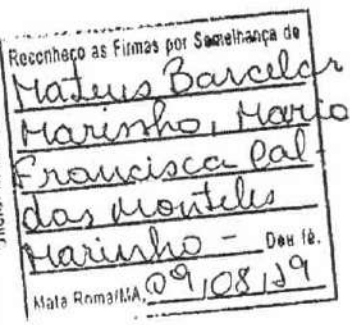 Reconheço as Firmas por Semelhança de
Mateus Barcelar
Marinho, Maria
Francisca Cal
das Monteles
Marinho - Dou fé.
Mata Roma/MA, 09/08/19